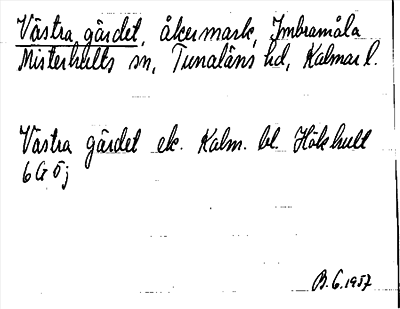 Västra gärdet, åkermark, Imbramåla
Misterhults sn, Tunaläns hd, Kalmar l.
Västra gärdet ek. Kalm. bl. Hökhult
6G 5j
B.G. 1957